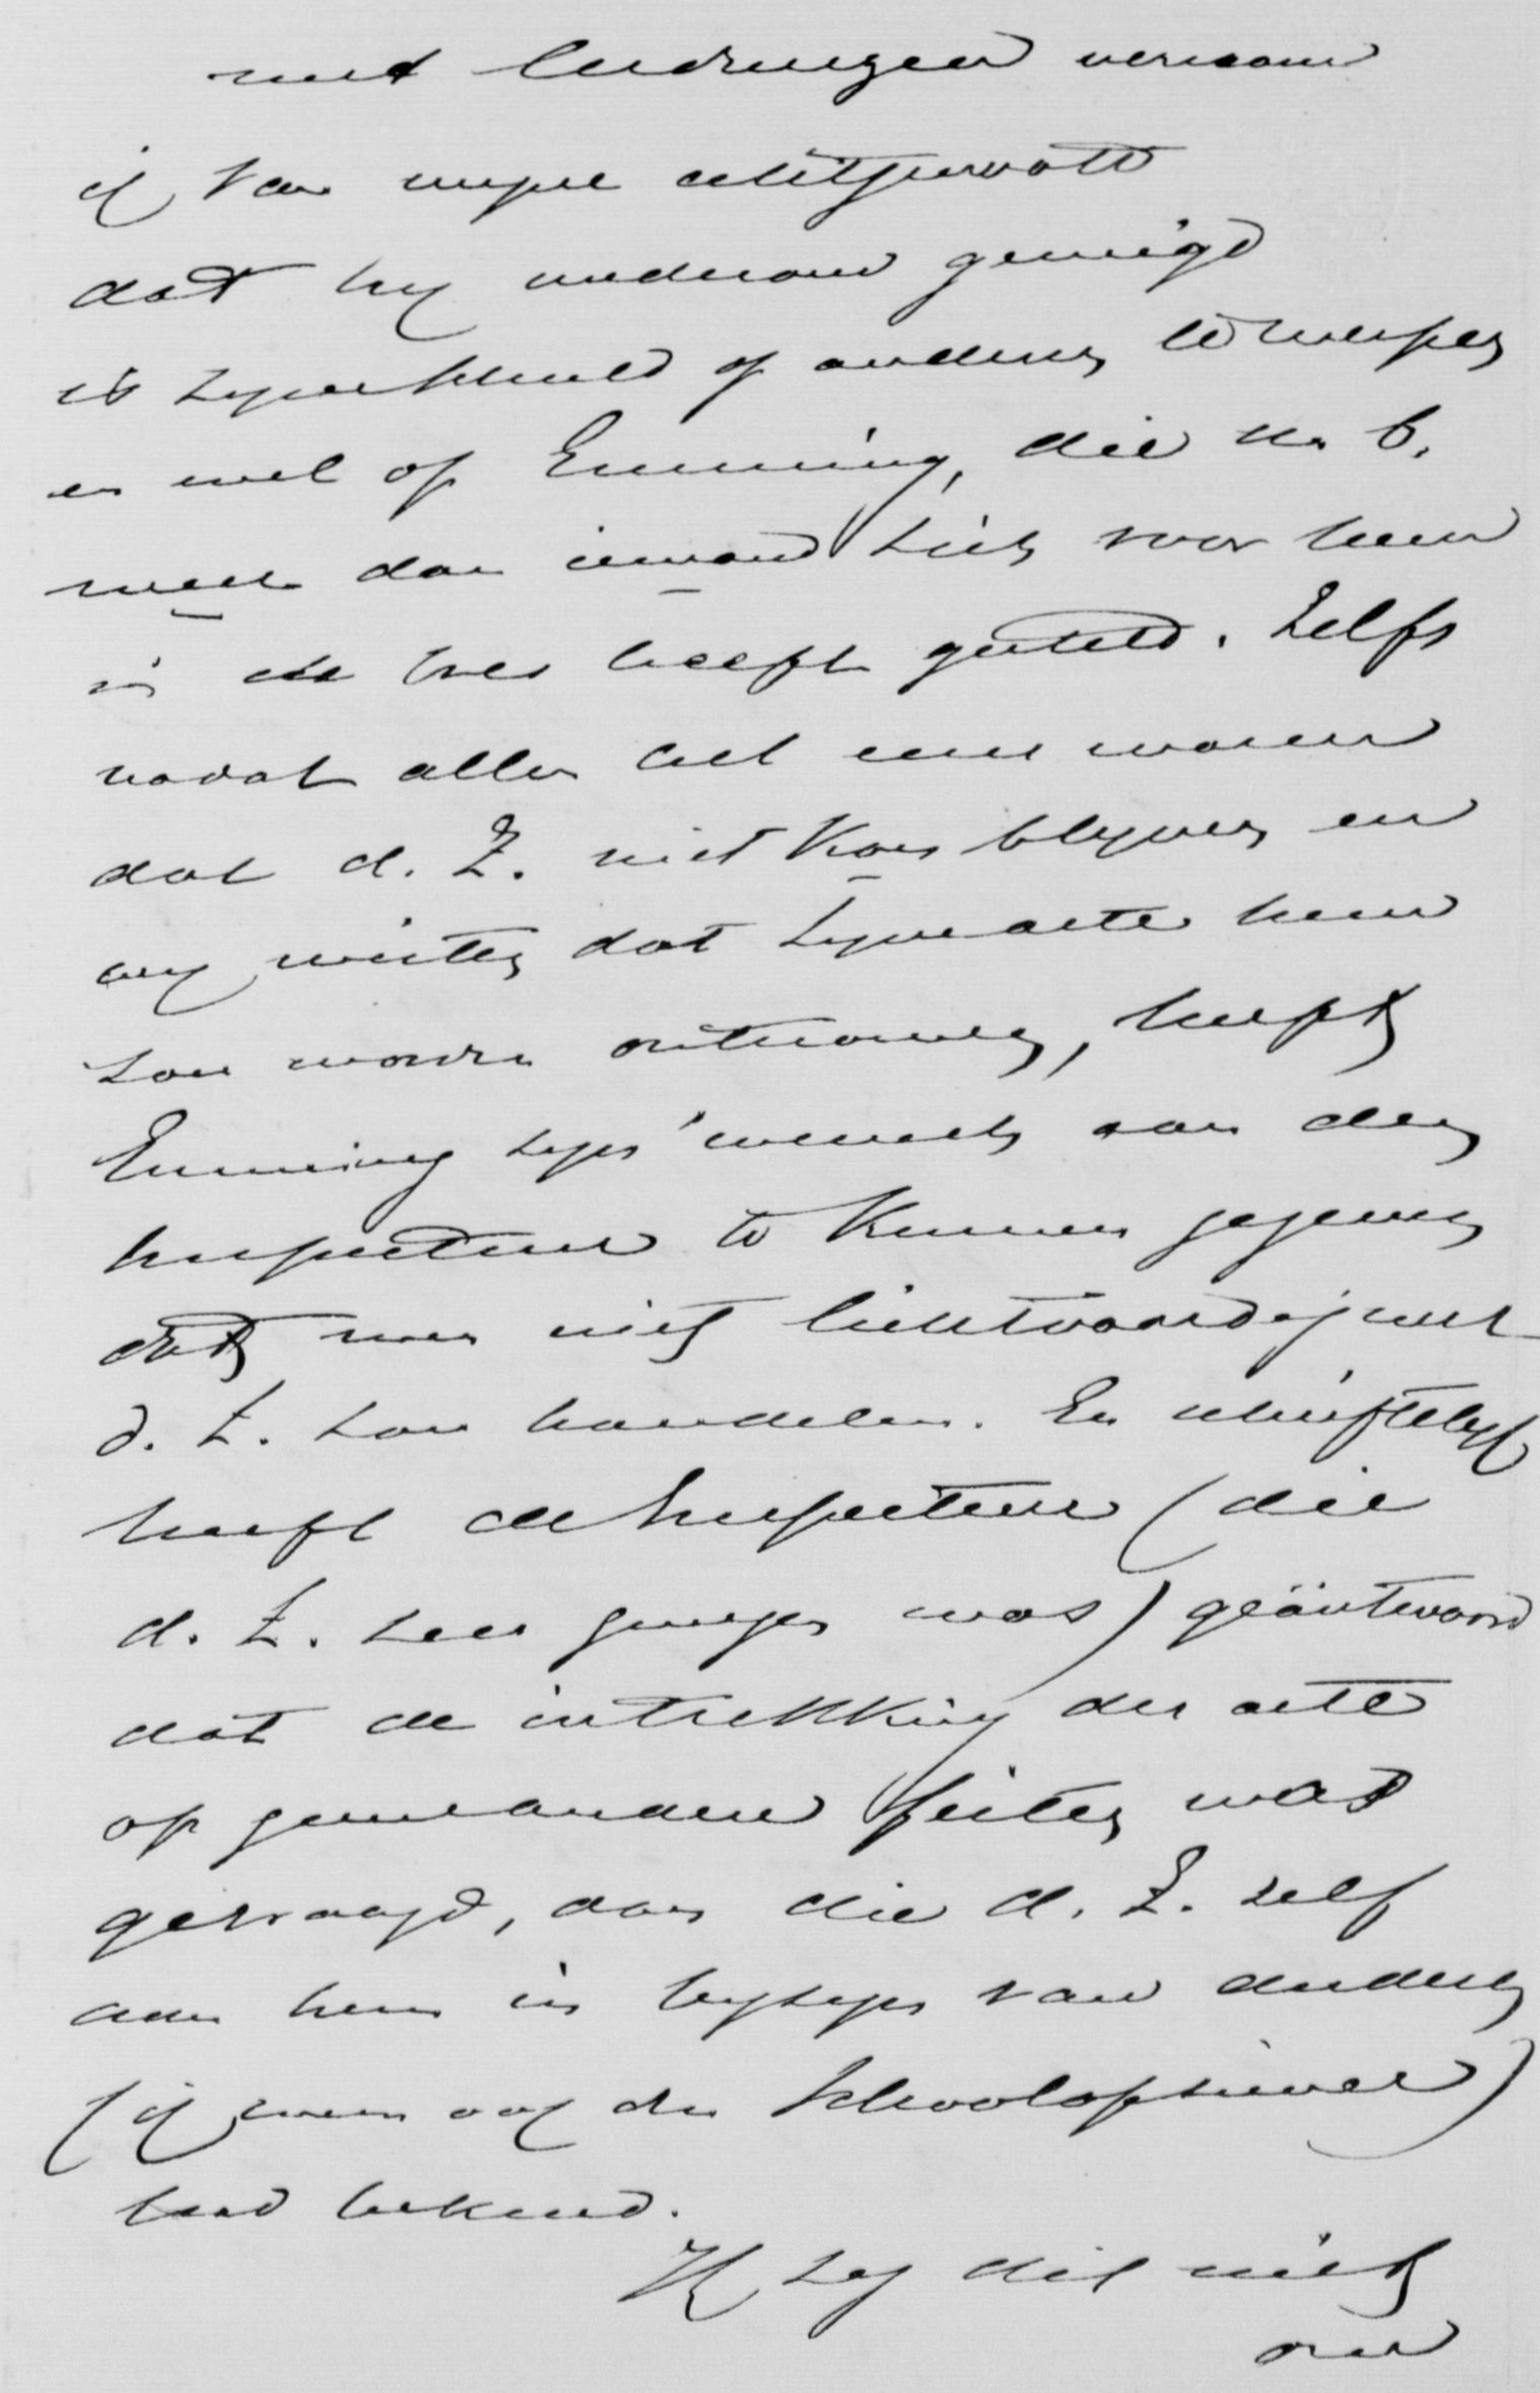 met leedwezen vernam
ik van mijne echtgenoote
dat hij wederom geneigd
is zijne schuld op anderen te werpen
en wel op Emming, die n. b.
meer dan iemand zich voor hem
in de bres heeft gesteld. Zelfs
nadat allen het eens waren
dat d. Z. niet kon blijven en
wij wisten dat zijne acte hem
zou worden ontnomen, heeft
Emming zijn wensch aan den
Inspecteur te kennen gegeven
dat men niet lichtvaardig met
d. Z. zou handelen. En schriftelijk
heeft de Inspecteur (die
d. Z. zeer genegen was) geäntwoord
dat de intrekking der acte
op geene andere feiten was
gevraagd, dan die d. Z. zelf
aan hem in bijzijn van anderen
(ik meen ook den Schoolopziener)
had bekend.
Ik zeg dit niet
om